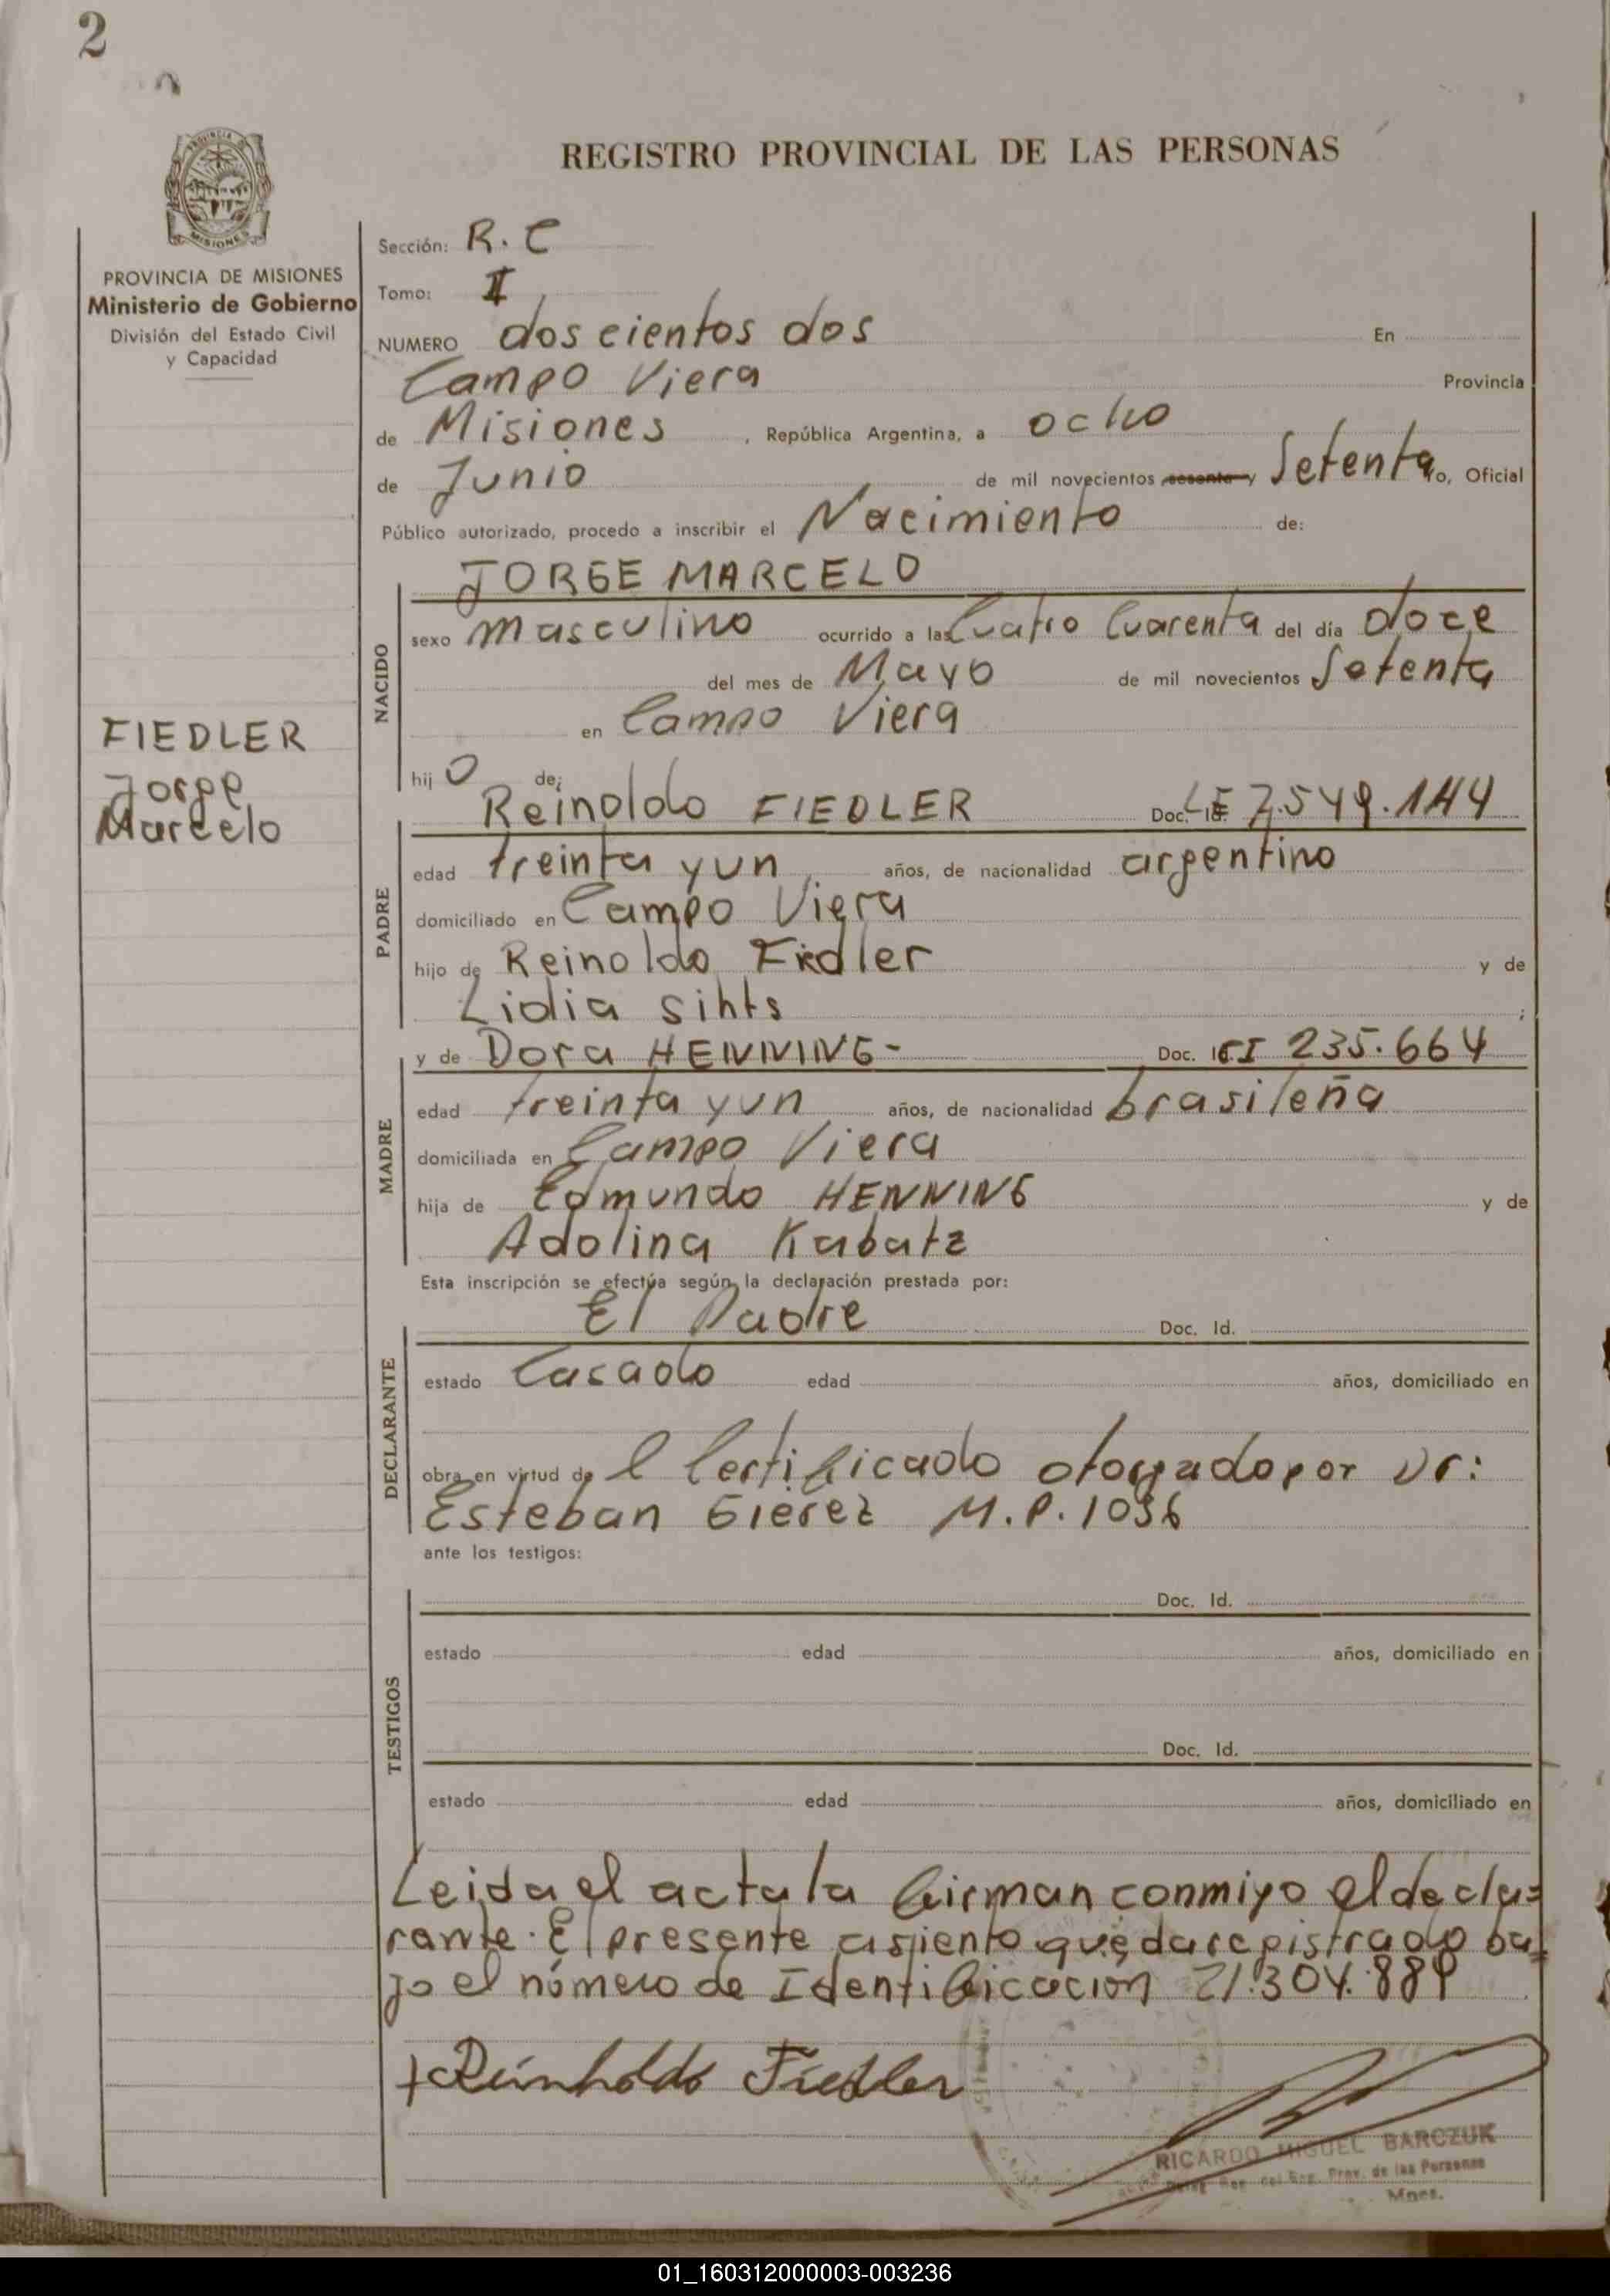 2
REGISTRO PROVINCIAL DE LAS PERSONAS
PROVINCIA
MISIONES
PROVINCIA DE MISIONES
Ministerio de Gobierno
División del Estado Civil
y Capacidad
FIEDLER
Jorge
Marcelo
Sección: R. C
Tomo: I
NUMERO doscientos dos En
Campo Viera Provincia
de Misiones, República Argentina, a ocho
de Junio de mil novecientos sesenta y Setenta yo, Oficial
Público autorizado, procedo a inscribir el Nacimiento de:
JORGE MARCELO
NACIDO
sexo masculino ocurrido a las Cuatro Cuarenta del día doce
del mes de Mayo de mil novecientos Setenta
en Campo Viera
hij o de:
Reinoldo FIEDLER Doc. LE 7.549.144
PADRE
edad treinta y un años, de nacionalidad argentino
domiciliado en Campo Viera
hijo de Reinoldo Fiedler y de
Lidia Sihts ;
y de Dora HENNING- Doc. CI 235.664
MADRE
edad treinta y un años, de nacionalidad brasileña
domiciliada en Campo Viera
hija de Edmundo HENNING y de
Adolina Kabatz
Esta inscripción se efectúa según la declaración prestada por:
El Padre Doc. Id.
DECLARANTE
estado Casado edad años, domiciliado en
obra en virtud de l Certificado otorgado por Dr:
Esteban M.P. 1036
ante los testigos:
Doc. Id.
TESTIGOS
estado edad años, domiciliado en
Doc. Id.
estado edad años, domiciliado en
Leida el acta la firman conmigo el decla=
rante. El presente asiento queda registrado ba=
jo el número de Identificación 21.304.889
Reinholdo Fiedler
RICARDO MIGUEL BARCZUK
Prov. de las Personas
Mnes.
01_160312000003-003236